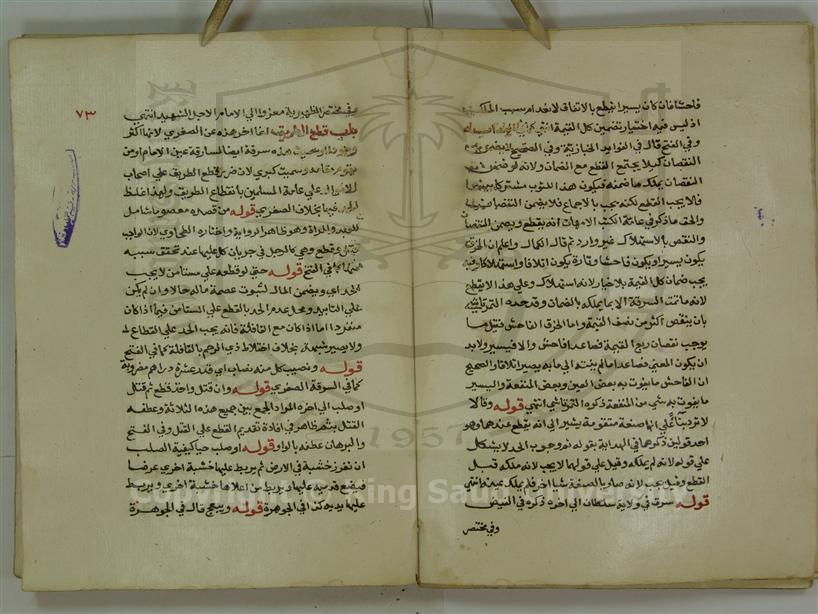 فاحشا فان كان يسيرا يقطع بالاتفاق لانعدام سبب الملك
اذ ليس فيه اختيار تضمين كل القيمة انتهى
وفي الفتح قال في الفوائد الخبازية وفي الصحيح لا يضمن
النقصان كيلا يجتمع القطع مع الضمان ولانه لو ضمن
النقصان يملك ما ضمنه فيكون هذا الثوب مشتركا بينهما
فلا يجب القطع لكنه يجب بالاجماع فلا يضمن النقصان
والحق ما ذكر في عامة الكتب الامهات انه يقطع ويضمن النقصان
والنقض بالاستهلاك غير وارد ثم قال الكمال واعلم ان الخرق
يكون يسيرا ويكون فاحشا وتارة يكون اتلافا واستهلاكا وفيه
يجب ضمان كل القيمة بلا خيار لانه استهلاك وعلى هذا لا يقطع
لانه ما تمت السرقة الا بما يملكه بالضمان وقد حده التمرتاشي
بان ينقص اكثر من نصف القيمة واما الخرق الفاحش فقيل ما
يوجب نقصان ربع القيمة فصاعدا فاحش والا فيسير ولا بد
ان يكون المعنى فصاعدا ما لم ينته الى ما به يصير اتلافا والصحيح
ان الفاحش ما يفوت به بعض العين وبعض المنفعة واليسير
ما يفوت به شيء من المنفعة ذكره التمرتاشي انتهى قوله وقالا
لا تردها صنعة متقومة يشير الى انه يقطع عندهما وهو
احد قولين ذكرهما في الهداية بقوله ثم وجوب الحد لا يشكل
على قوله لانه لم يملكه وقيل على قولهما لا يجب لانه ملكه قبل
القطع وقيل يجب لانه صار بالصنعة شيا اخر فلم يملك عينه انتهى
قوله سرق في ولاية سلطان الى اخره ذكره في الفيض
وفي مختصر
٧٣
وفي مختصر الظهيرية معزوا الى الامام الاجل الشهيد انتهى
باب قطع الطريق انما اخر هذه عن الصغرى لانها اكثر
وجودا وسميت هذه سرقة ايضا لمسارقة عين الامام او من
يقوم مقامه وسميت كبرى لان ضرر قطع الطريق على اصحاب
الاموال على عامة المسلمين بانقطاع الطريق ولهذا غلظ
الحد فيها بخلاف الصغرى قوله من قصده معصوما شامل
للعبد والمراة وهو ظاهر الرواية واختاره الطحاوي لان الواجب
قتل وقطع وهي كالرجل في جريان كل عليها عند تحقق سببه
منها كما في الفتح قوله حتى لو قطعه على مستامن لا يجب
الحد اي ويضمن المال لثبوت عصمة ماله حالا وان لم يكن
على التابيد ومحل عدم الحد بالقطع على المستامن فيما اذا كان
منفردا اما اذا كان مع القافلة فانه يجب الحد على القطاع
ولا يصير شبهة بخلاف اختلاط ذي الرحم بالقافلة كما في الفتح
قوله ونصيب كل منه نصاب اي قدر عشرة دراهم مضروبة
كما في السرقة الصغرى قوله وان قتل واخذ قطع ثم قتل
او صلب الى اخره المراد الجمع بين جميع هذه الثلاثة وعطفه
القتل بثم ظاهر في افادة تقديم القطع على القتل وفي الفتح
والبرهان عطفه بالواو قوله او صلب حيا كيفية الصلب
ان تغرز خشبة في الارض ثم يربط عليها خشبة اخرى عرضا
فيضع قدميه عليها ويربط من اعلاها خشبة اخرى ويربط
عليها يديه كذا في الجوهرة قوله ويبعج قال في الجوهرة